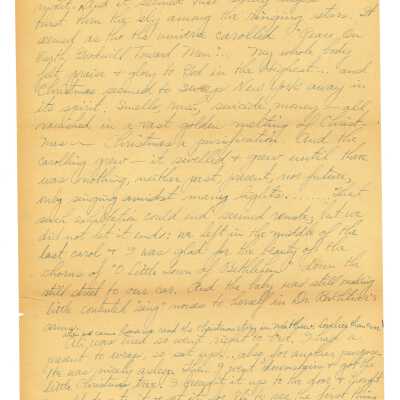 burst from the sky among the singing stars. It
seemed as tho the universe carolled "Peace On
Earth, Goodwill Toward Men"! My whole body
felt praise & glory to God in the Highest... and
Christmas seemed to sweep New York away in
its spirit. Smells, suicide, money — all
vanished in a vast golden melting of Christ
mas — Christmas & purification. And the
carolling grew — it swelled & grew until there
was nothing, neither past, present, nor future,
only singing amidst many lights........ That
such could end seemed remote, but we
did not let it end: we left in the middle of the
last carol & I was glad for the beauty of the
chorus of "O Little Town of Bethlehem" down the
still street to our car. And the baby was still making
little contented "sing" noises to herself in
arms.
we came home & read the Christmas story in Matthew.
was tired so went right to bed, I had a
present to wrap, so sat up... also for another purpose
He was nicely asleep when I went downstairs & got the
little Christmas tree. I brought it up to the door &
the first thing